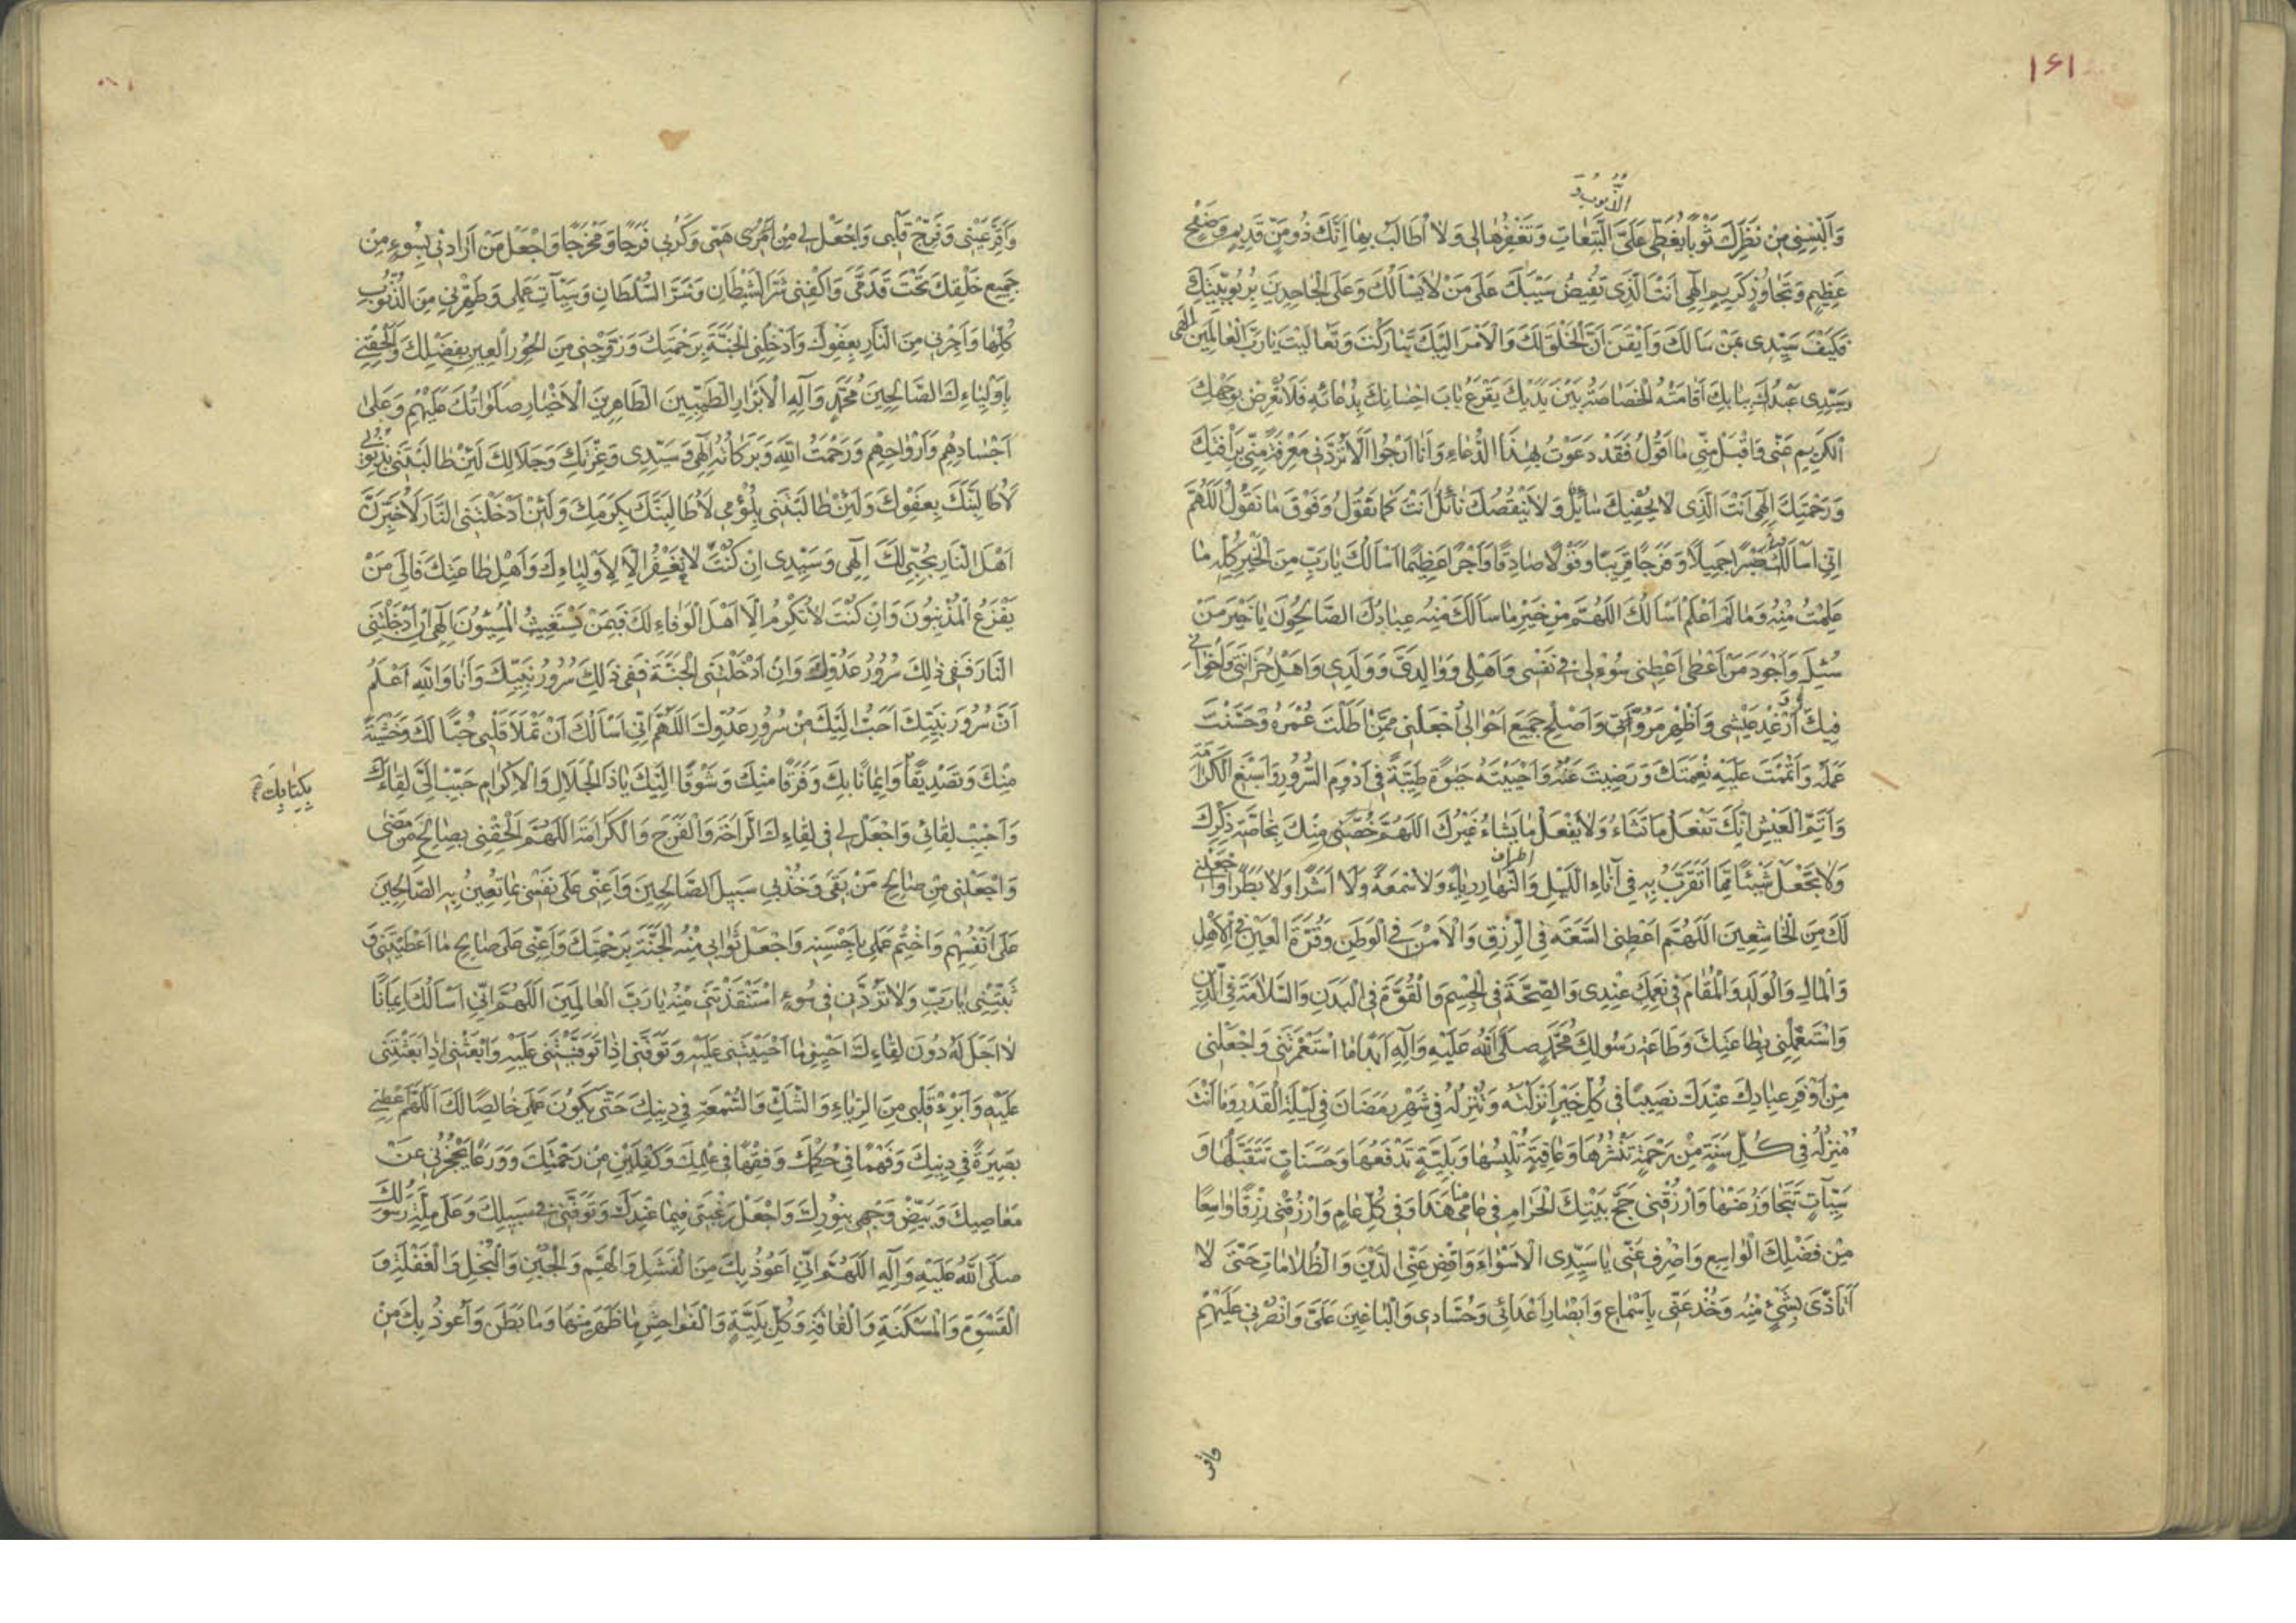 ١٤١
الذُّنُوبَ
وَاَلْبِسْنِي مِنْ نَظَرِكَ ثَوْبًا يُغَطِّي عَلَيَّ التَّبِعَاتِ وَتَغْفِرُهَا لِي وَلَا اُطَالَبُ بِهَا اِنَّكَ ذُو مَنٍّ قَدِيمٍ وَصَفْحٍ
عَظِيمٍ وَتَجَاوُزٍ كَرِيمٍ اِلٰهِي اَنْتَ الَّذِي تُفِيضُ سَيْبَكَ عَلَى مَنْ لَا يَسْاَلُكَ وَعَلَى الْجَاحِدِينَ بِرُبُوبِيَّتِكَ
فَكَيْفَ سَيِّدِي بِمَنْ سَاَلَكَ وَاَيْقَنَ اَنَّ الْخَلْقَ لَكَ وَالْاَمْرَ اِلَيْكَ تَبَارَكْتَ وَتَعَالَيْتَ يَا رَبَّ الْعَالَمِينَ اِلٰهِي
سَيِّدِي عَبْدُكَ بِبَابِكَ اَقَامَتْهُ الْخَصَاصَةُ بَيْنَ يَدَيْكَ يَقْرَعُ بَابَ اِحْسَانِكَ بِدُعَائِهِ فَلَا تُعْرِضْ بِوَجْهِكَ
الْكَرِيمِ عَنِّي وَاقْبَلْ مِنِّي مَا اَقُولُ فَقَدْ دَعَوْتُ بِهٰذَا الدُّعَاءِ وَاَنَا اَرْجُو اَلَّا تَرُدَّنِي مَعْرِفَةً مِنِّي بِرَاْفَتِكَ
وَرَحْمَتِكَ اِلٰهِي اَنْتَ الَّذِي لَا يُحْفِيكَ سَائِلٌ وَلَا يَنْقُصُكَ نَائِلٌ اَنْتَ كَمَا تَقُولُ وَفَوْقَ مَا نَقُولُ اللّٰهُمَّ
اِنِّي اَسْاَلُكَ صَبْرًا جَمِيلًا وَفَرَجًا قَرِيبًا وَقَوْلًا صَادِقًا وَاَجْرًا عَظِيمًا اَسْاَلُكَ يَا رَبِّ مِنَ الْخَيْرِ كُلِّهِ مَا
عَلِمْتُ مِنْهُ وَمَا لَمْ اَعْلَمْ اَسْاَلُكَ اللّٰهُمَّ مِنْ خَيْرِ مَا سَاَلَكَ مِنْهُ عِبَادُكَ الصَّالِحُونَ يَا خَيْرَ مَنْ
سُئِلَ وَاَجْوَدَ مَنْ اَعْطَى اَعْطِنِي سُؤْلِي فِي نَفْسِي وَاَهْلِي وَوَالِدَيَّ وَوَلَدِي وَاَهْلِ حُزَانَتِي وَاِخْوَانِي
فِيكَ اَرْغِدْ عَيْشِي وَاَظْهِرْ مُرُوَّتِي وَاَصْلِحْ جَمِيعَ اَحْوَالِي اجْعَلْنِي مِمَّنْ اَطَلْتَ عُمْرَهُ وَحَسَّنْتَ
عَمَلَهُ وَاَتْمَمْتَ عَلَيْهِ نِعْمَتَكَ وَرَضِيتَ عَنْهُ وَاَحْيَيْتَهُ حَيٰوةً طَيِّبَةً فِي اَدْوَمِ السُّرُورِ وَاَسْبَغِ الْكَرَامَةِ
وَاَتَمِّ الْعَيْشِ اِنَّكَ تَفْعَلُ مَا تَشَاءُ وَلَا يَفْعَلُ مَا يَشَاءُ غَيْرُكَ اللّٰهُمَّ خُصَّنِي مِنْكَ بِخَاصَّةِ ذِكْرِكَ
اطراف
وَلَا تَجْعَلْ شَيْئًا مِمَّا اَتَقَرَّبُ بِهِ فِي آنَاءِ اللَّيْلِ وَالنَّهَارِ رِيَاءً وَلَا سُمْعَةً وَلَا اَشَرًا وَلَا بَطَرًا وَاجْعَلْنِي
لَكَ مِنَ الْخَاشِعِينَ اللّٰهُمَّ اَعْطِنِي السَّعَةَ فِي الرِّزْقِ وَالْاَمْنَ فِي الْوَطَنِ وَقُرَّةَ الْعَيْنِ فِي الْاَهْلِ
وَالْمَالِ وَالْوَلَدِ وَالْمُقَامَ فِي نِعَمِكَ عِنْدِي وَالصِّحَّةَ فِي الْجِسْمِ وَالْقُوَّةَ فِي الْبَدَنِ وَالسَّلَامَةَ فِي الدِّينِ
وَاسْتَعْمِلْنِي بِطَاعَتِكَ وَطَاعَةِ رَسُولِكَ مُحَمَّدٍ صَلَّى اللّٰهُ عَلَيْهِ وَآلِهِ اَبَدًا مَا اسْتَعْمَرْتَنِي وَاجْعَلْنِي
مِنْ اَوْفَرِ عِبَادِكَ عِنْدَكَ نَصِيبًا فِي كُلِّ خَيْرٍ اَنْزَلْتَهُ وَتُنْزِلُهُ فِي شَهْرِ رَمَضَانَ فِي لَيْلَةِ الْقَدْرِ وَمَا اَنْتَ
مُنْزِلُهُ فِي كُلِّ سَنَةٍ مِنْ رَحْمَةٍ تَنْشُرُهَا وَعَافِيَةٍ تُلْبِسُهَا وَبَلِيَّةٍ تَدْفَعُهَا وَحَسَنَاتٍ تَتَقَبَّلُهَا وَ
سَيِّئَاتٍ تَتَجَاوَزُ عَنْهَا وَارْزُقْنِي حَجَّ بَيْتِكَ الْحَرَامِ فِي عَامِي هٰذَا وَفِي كُلِّ عَامٍ وَارْزُقْنِي رِزْقًا وَاسِعًا
مِنْ فَضْلِكَ الْوَاسِعِ وَاصْرِفْ عَنِّي يَا سَيِّدِي الْاَسْوَاءَ وَاقْضِ عَنِّي الدَّيْنَ وَالظُّلَامَاتِ حَتَّى لَا
اَتَاَذَّى بِشَيْءٍ مِنْهُ وَخُذْ عَنِّي بِاَسْمَاعِ وَاَبْصَارِ اَعْدَائِي وَحُسَّادِي وَالْبَاغِينَ عَلَيَّ وَانْصُرْنِي عَلَيْهِمْ
وَاَقِرَّ عَيْنِي وَفَرِّحْ قَلْبِي وَاجْعَلْ لِي مِنْ اَمْرِي هَمِّي وَكَرْبِي فَرَجًا وَمَخْرَجًا وَاجْعَلْ مَنْ اَرَادَنِي بِسُوءٍ مِنْ
جَمِيعِ خَلْقِكَ تَحْتَ قَدَمَيَّ وَاكْفِنِي شَرَّ الشَّيْطَانِ وَشَرَّ السُّلْطَانِ وَسَيِّئَاتِ عَمَلِي وَطَهِّرْنِي مِنَ الذُّنُوبِ
كُلِّهَا وَاَجِرْنِي مِنَ النَّارِ بِعَفْوِكَ وَاَدْخِلْنِي الْجَنَّةَ بِرَحْمَتِكَ وَزَوِّجْنِي مِنَ الْحُورِ الْعِينِ بِفَضْلِكَ وَاَلْحِقْنِي
بِاَوْلِيَاءِكَ الصَّالِحِينَ مُحَمَّدٍ وَآلِهِ الْاَبْرَارِ الطَّيِّبِينَ الطَّاهِرِينَ الْاَخْيَارِ صَلَوَاتُكَ عَلَيْهِمْ وَعَلَى
اَجْسَادِهِمْ وَاَرْوَاحِهِمْ وَرَحْمَتُ اللّٰهِ وَبَرَكَاتُهُ اِلٰهِي وَسَيِّدِي وَعِزَّتِكَ وَجَلَالِكَ لَئِنْ طَالَبْتَنِي بِذُنُوبِي
لَاُطَالِبَنَّكَ بِعَفْوِكَ وَلَئِنْ طَالَبْتَنِي بِلُؤْمِي لَاُطَالِبَنَّكَ بِكَرَمِكَ وَلَئِنْ اَدْخَلْتَنِي النَّارَ لَاُخْبِرَنَّ
اَهْلَ النَّارِ بِحُبِّي لَكَ اِلٰهِي وَسَيِّدِي اِنْ كُنْتَ لَا تَغْفِرُ اِلَّا لِاَوْلِيَاءِكَ وَاَهْلِ طَاعَتِكَ فَاِلَى مَنْ
يَفْزَعُ الْمُذْنِبُونَ وَاِنْ كُنْتَ لَا تُكْرِمُ اِلَّا اَهْلَ الْوَفَاءِ لَكَ فَبِمَنْ يَسْتَغِيثُ الْمُسِيئُونَ اِلٰهِي اِنْ اَدْخَلْتَنِي
النَّارَ فَفِي ذٰلِكَ سُرُورُ عَدُوِّكَ وَاِنْ اَدْخَلْتَنِي الْجَنَّةَ فَفِي ذٰلِكَ سُرُورُ نَبِيِّكَ وَاَنَا وَاللّٰهِ اَعْلَمُ
اَنَّ سُرُورَ نَبِيِّكَ اَحَبُّ اِلَيْكَ مِنْ سُرُورِ عَدُوِّكَ اللّٰهُمَّ اِنِّي اَسْاَلُكَ اَنْ تَمْلَاَ قَلْبِي حُبًّا لَكَ وَخَشْيَةً
مِنْكَ وَتَصْدِيقًا وَاِيمَانًا بِكَ وَفَرَقًا مِنْكَ وَشَوْقًا اِلَيْكَ يَا ذَا الْجَلَالِ وَالْاِكْرَامِ حَبِّبْ اِلَيَّ لِقَاءَكَ
بِكِتَابِكَ
وَاَحْبِبْ لِقَائِي وَاجْعَلْ لِي فِي لِقَاءِكَ الرَّاحَةَ وَالْفَرَجَ وَالْكَرَامَةَ اللّٰهُمَّ اَلْحِقْنِي بِصَالِحِ مَنْ مَضَى
وَاجْعَلْنِي مِنْ صَالِحِ مَنْ بَقِيَ وَخُذْ بِي سَبِيلَ الصَّالِحِينَ وَاَعِنِّي عَلَى نَفْسِي بِمَا تُعِينُ بِهِ الصَّالِحِينَ
عَلَى اَنْفُسِهِمْ وَاخْتِمْ عَمَلِي بِاَحْسَنِهِ وَاجْعَلْ ثَوَابِي مِنْهُ الْجَنَّةَ بِرَحْمَتِكَ وَاَعِنِّي عَلَى صَالِحِ مَا اَعْطَيْتَنِي وَ
ثَبِّتْنِي يَا رَبِّ وَلَا تَرُدَّنِي فِي سُوءٍ اسْتَنْقَذْتَنِي مِنْهُ يَا رَبَّ الْعَالَمِينَ اللّٰهُمَّ اِنِّي اَسْاَلُكَ اِيمَانًا
لَا اَجَلَ لَهُ دُونَ لِقَاءِكَ اَحْيِنِي مَا اَحْيَيْتَنِي عَلَيْهِ وَتَوَفَّنِي اِذَا تَوَفَّيْتَنِي عَلَيْهِ وَابْعَثْنِي اِذَا بَعَثْتَنِي
عَلَيْهِ وَاَبْرِءْ قَلْبِي مِنَ الرِّيَاءِ وَالشَّكِّ وَالسُّمْعَةِ فِي دِينِكَ حَتَّى يَكُونَ عَمَلِي خَالِصًا لَكَ اللّٰهُمَّ اَعْطِنِي
بَصِيرَةً فِي دِينِكَ وَفَهْمًا فِي حُكْمِكَ وَفِقْهًا فِي عِلْمِكَ وَكِفْلَيْنِ مِنْ رَحْمَتِكَ وَوَرَعًا يَحْجُزُنِي عَنْ
مَعَاصِيكَ وَبَيِّضْ وَجْهِي بِنُورِكَ وَاجْعَلْ رَغْبَتِي فِيمَا عِنْدَكَ وَتَوَفَّنِي فِي سَبِيلِكَ وَعَلَى مِلَّةِ رَسُولِكَ
صَلَّى اللّٰهُ عَلَيْهِ وَآلِهِ اللّٰهُمَّ اِنِّي اَعُوذُ بِكَ مِنَ الْفَشَلِ وَالْهَمِّ وَالْجُبْنِ وَالْبُخْلِ وَالْغَفْلَةِ وَ
الْقَسْوَةِ وَالْمَسْكَنَةِ وَالْفَاقَةِ وَكُلِّ بَلِيَّةٍ وَالْفَوَاحِشِ مَا ظَهَرَ مِنْهَا وَمَا بَطَنَ وَاَعُوذُ بِكَ مِنْ